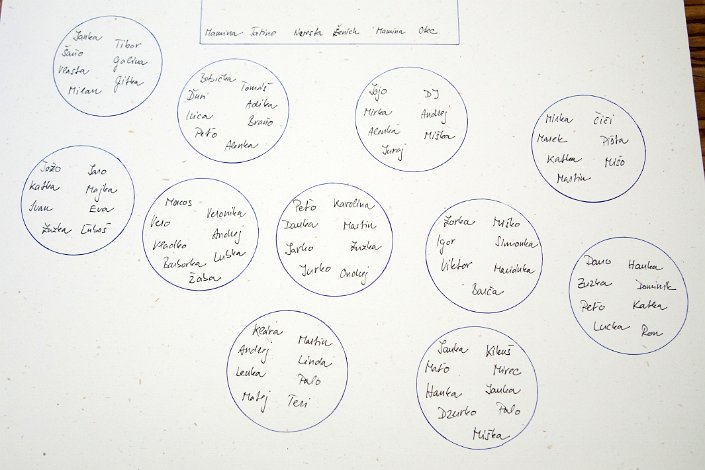 Mamina Tatino Nevesta Ženich Mamina Otec
Janka Tibor
Šaňo Galina
Vlasta Gitka
Milan
Babička Tomáš
Ďuri Adika
Luca Braňo
Peťo
Alenka
Jojo DJ
Mirka Andrej
Alenka Miška
Juraj
Mirka Čiči
Marek Pišta
Katka Mišo
Martin
Jožo Jaro
Katka Majka
Ivan Eva
Zuzka Ľuboš
Marcos
Vero Veronika
Vladko Andrej
Barborka Lubka
Žaba
Peťo Karolína
Danka Martin
Jarko Zuzka
Jurko Ondrej
Zorka Miško
Igor Simonka
Viktor Marianka
Barča
Dano Hanka
Zuzka Dominik
Peťo Katka
Lucka Ron
Martin
Andrej Linda
Lenka Palo
Matej Teri
Janka Kikuš
Maťo Mirec
Hanka Janka
Dzurko Palo
Miška